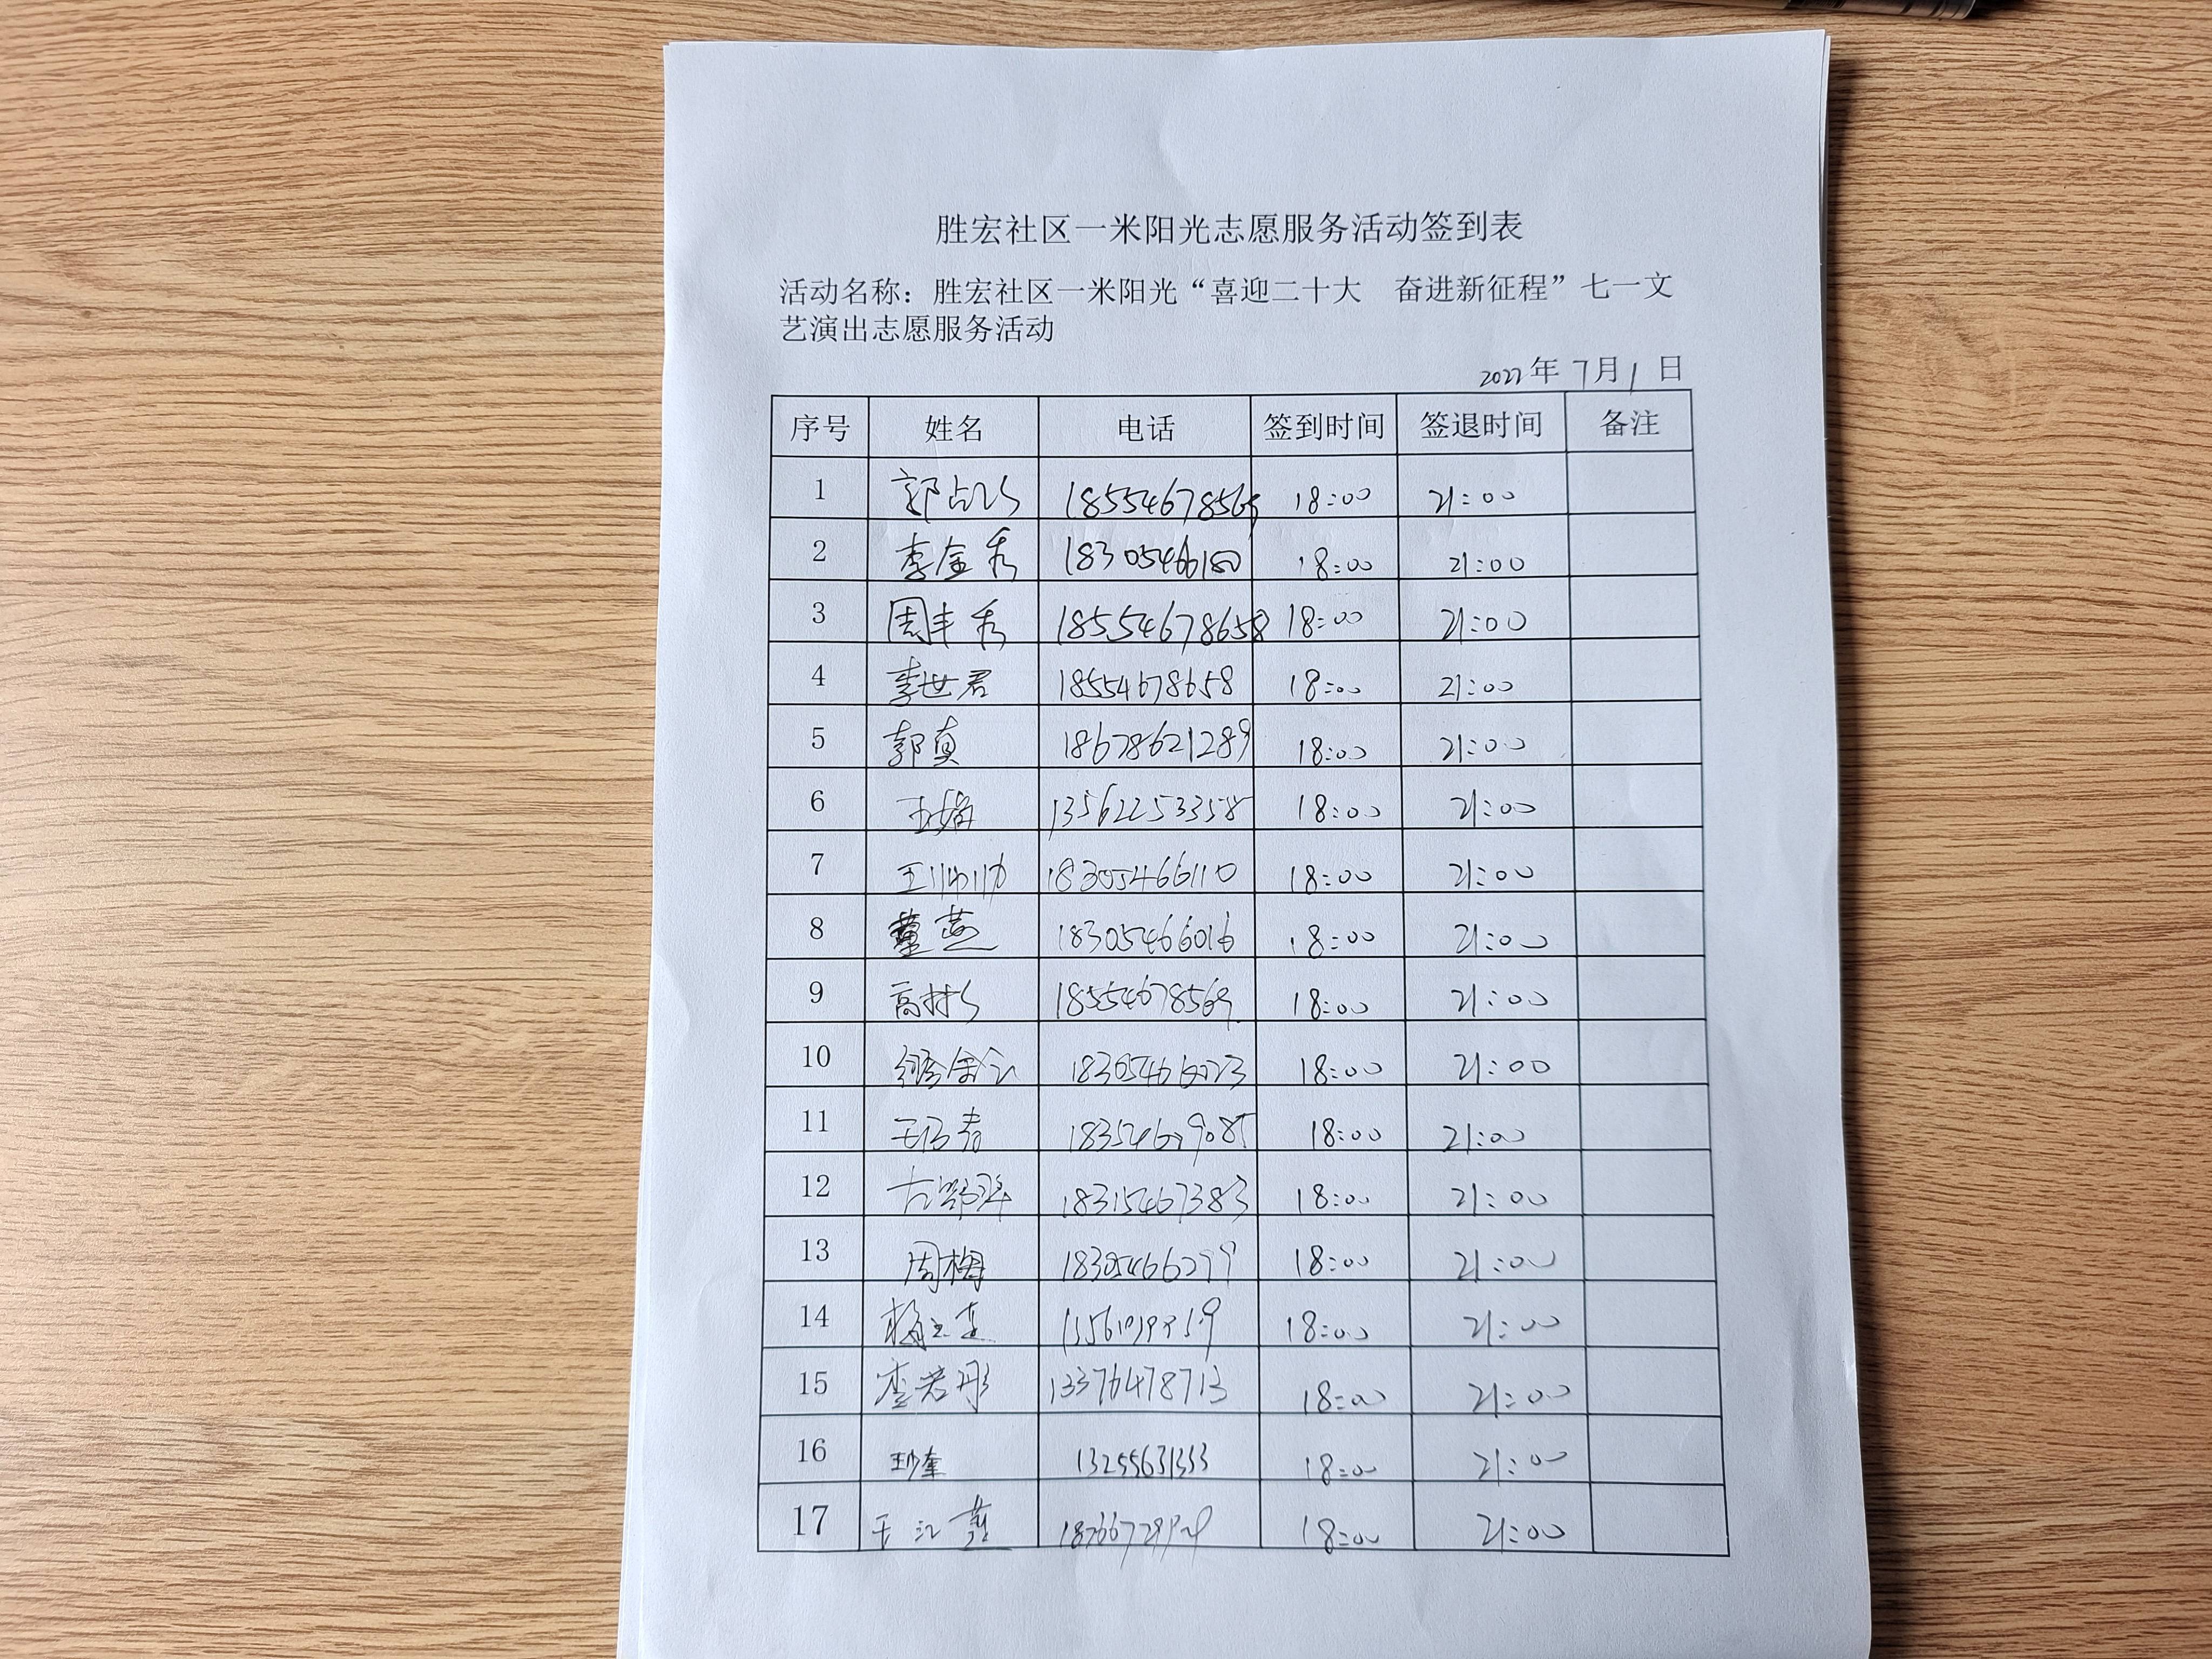 胜宏社区一米阳光志愿服务活动签到表
活动名称：胜宏社区一米阳光“喜迎二十大　奋进新征程”七一文
艺演出志愿服务活动
2022年7月1日
序号 姓名 电话 签到时间 签退时间 备注
1 18:00 21:00
2 李金秀 18305466180 18:00 21:00
3 周丰秀 18554678658 18:00 21:00
4 李世君 18554678658 18:00 21:00
5 郭真 18678621289 18:00 21:00
6 王娟 13562253358 18:00 21:00
7 18305466110 18:00 21:00
8 董燕 18305466016 18:00 21:00
9 18554678569 18:00 21:00
10 18:00 21:00
11 18:00 21:00
12 18315467383 18:00 21:00
13 周梅 18:00 21:00
14 18:00 21:00
15 13376478713 18:00 21:00
16 13255631333 18:00 21:00
17 18:00 21:00